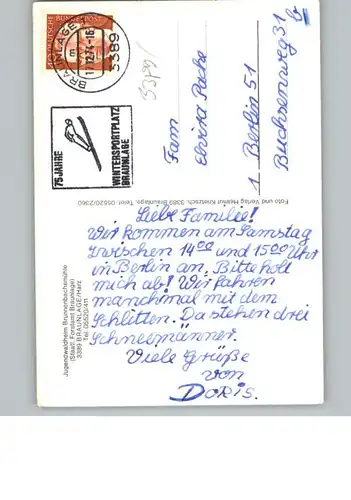 BRAUNLAGE
3389
17.12.74-16
75 JAHRE
WINTERSPORTPLATZ
BRAUNLAGE
3389
Fam
Elvira Pache
1 Berlin 51
Buchsenweg 31
Foto und Verlag Helmut Knietzsch, 3389 Braunlage, Telef. 05520/2360
Jugendwaldheim Brunnenbachsmühle
(Staatl. Forstamt Braunlage)
3389 BRAUNLAGE/Harz
Tel. 05520/411
Liebe Familie!
Wir kommen am Samstag
zwischen 14⁰⁰ und 15⁰⁰ Uhr
in Berlin an. Bitte holt
mich ab! Wir fahren
manchmal mit dem
Schlitten. Da stehen drei
Schneemänner.
Viele Grüße
von
Doris.